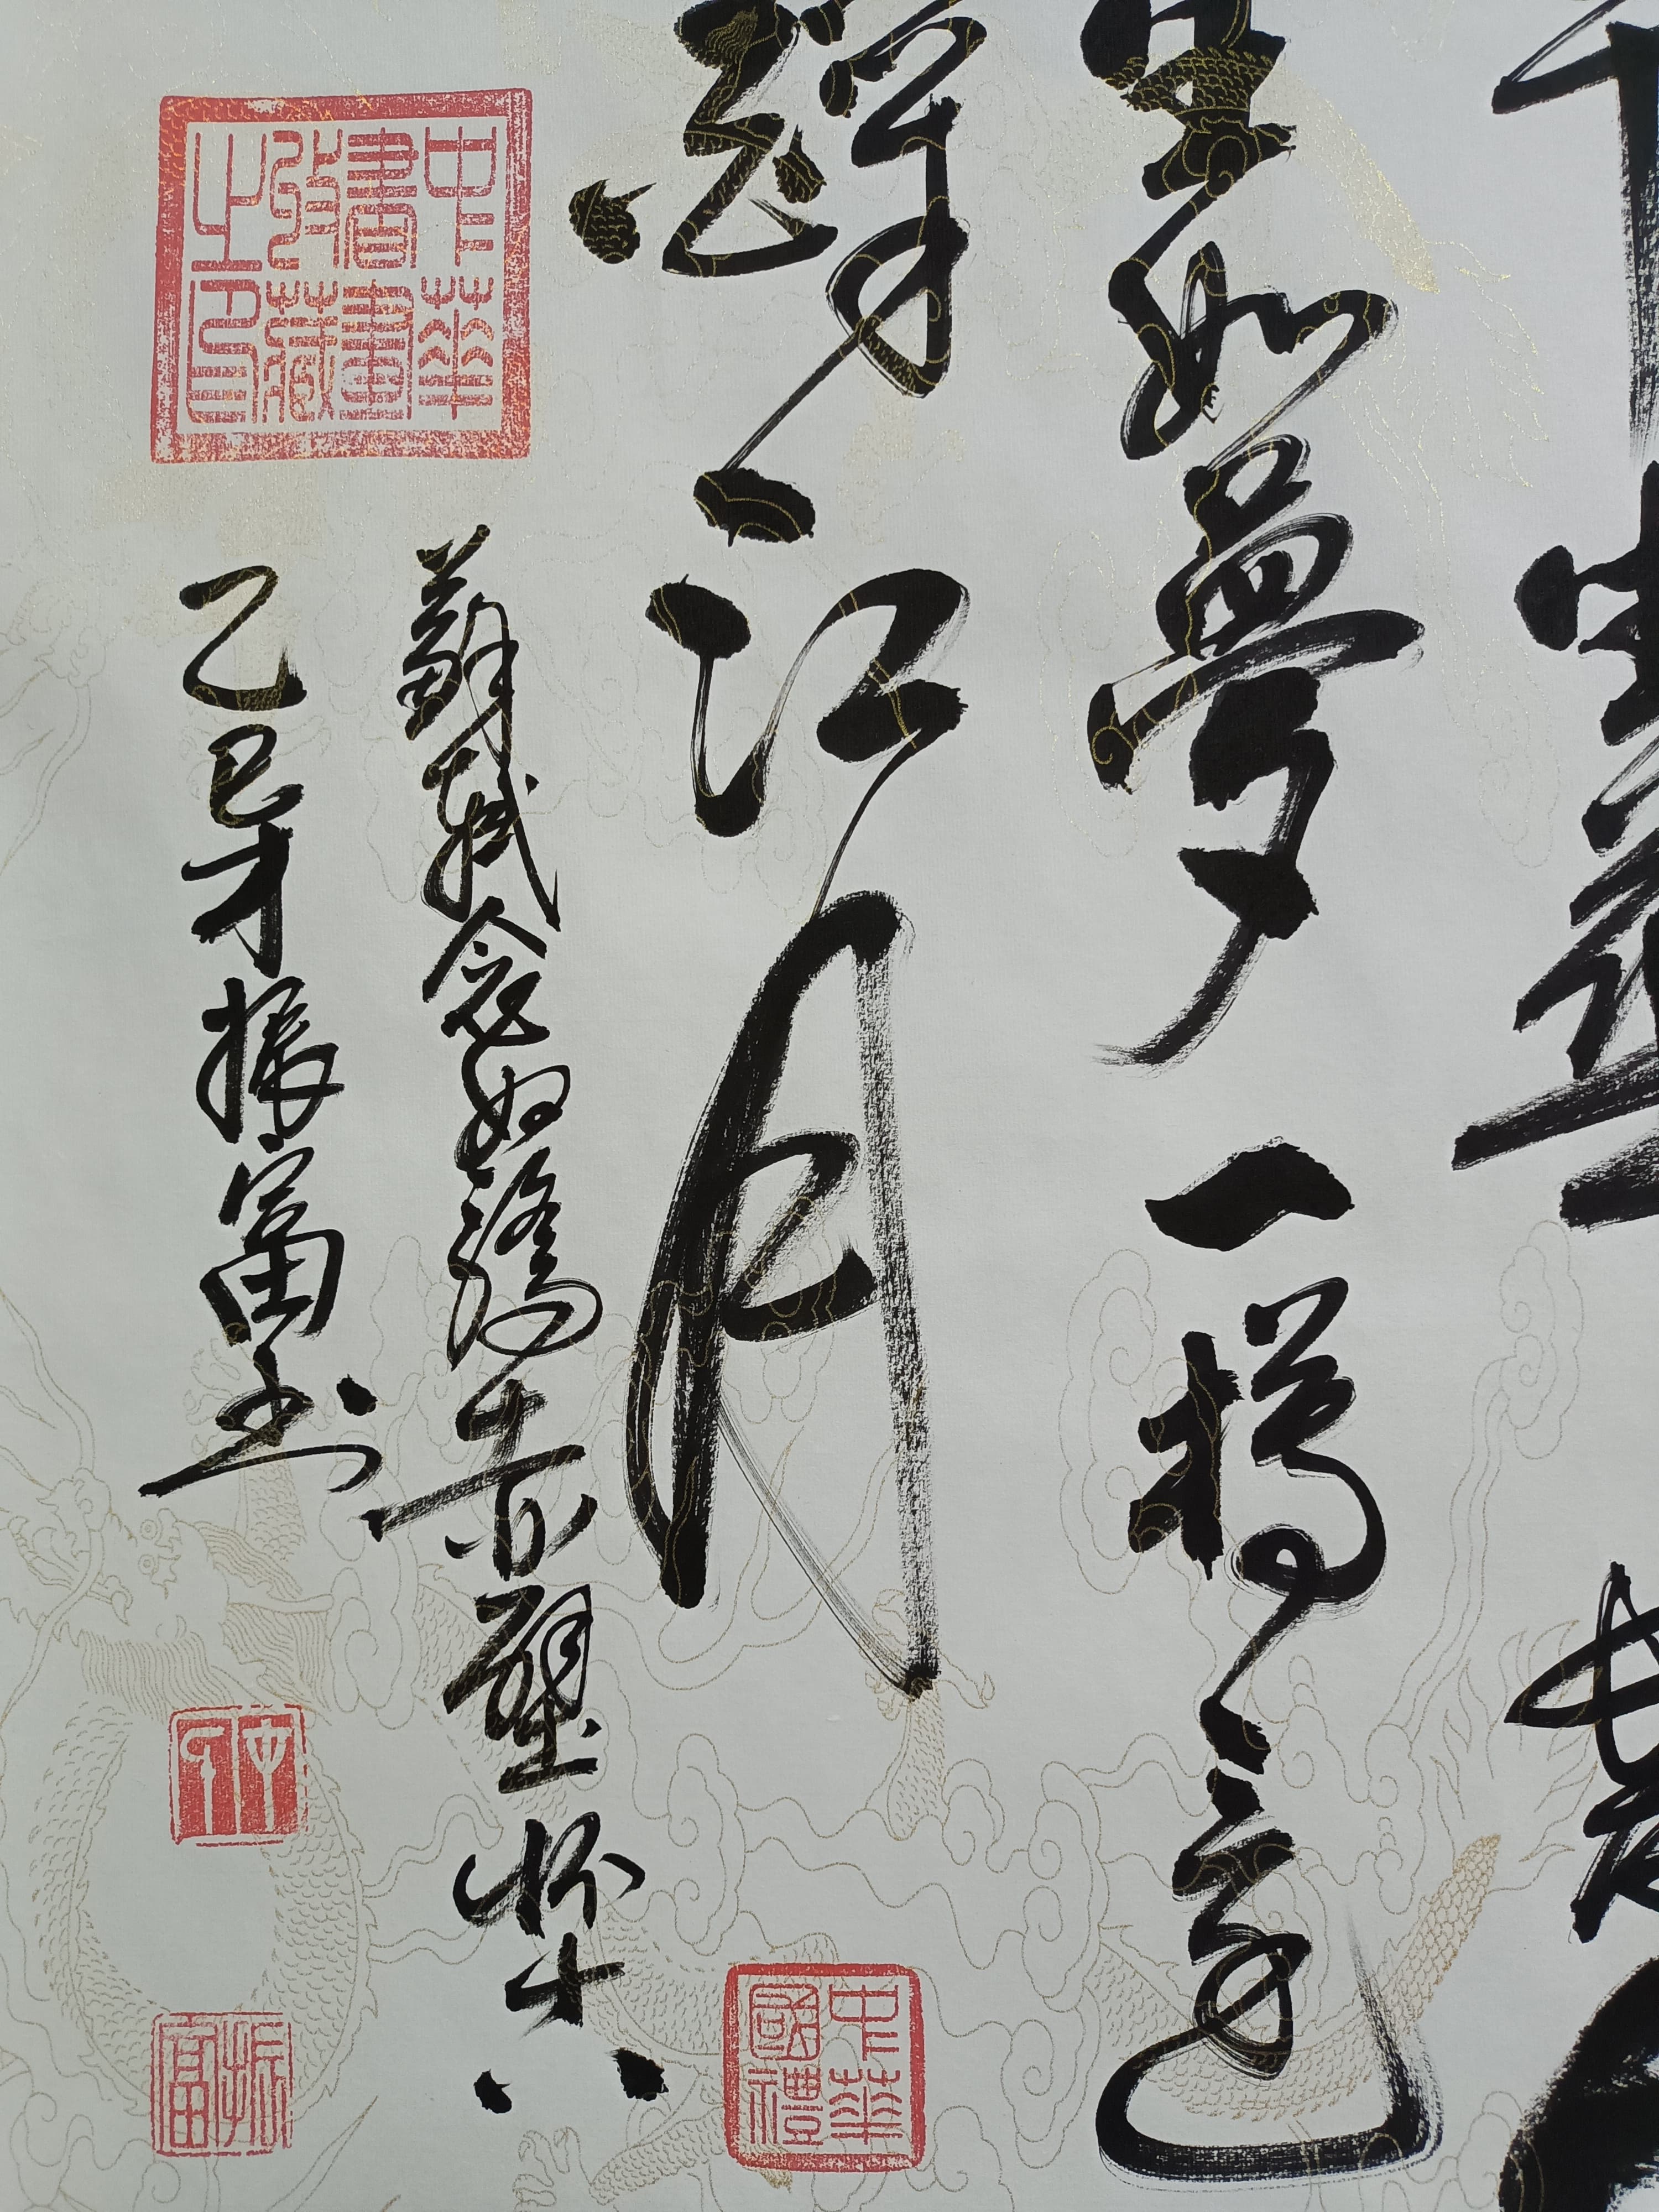 生華
生如夢一樽還
酹江月
蘇軾念奴嬌赤壁懷古
乙巳年振富書
中華書畫收藏之印
中華國禮
振富